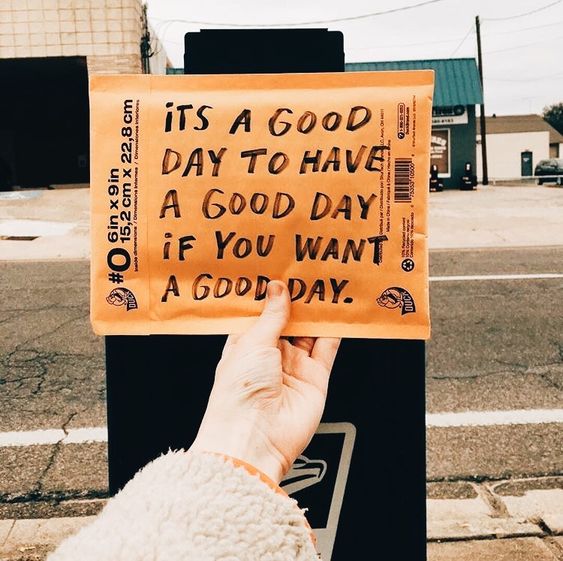 iTS A GOOD
DAY TO HAVE
A GOOD DAY
iF YOU WANT
A GOOD DAY.
#0 6in x 9in
15,2 cm x 22,8 cm
DUCK